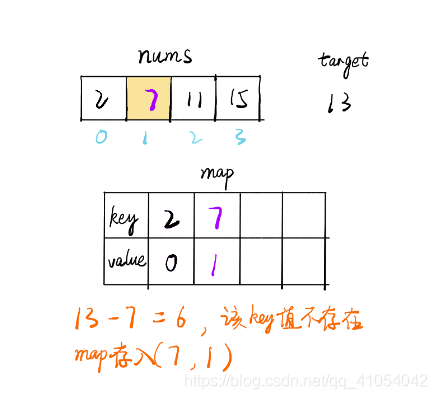 nums
target
2 7 11 15
13
0 1 2 3
map
key 2 7
value 0 1
13-7=6,该key值不存在
map存入(7,1)
https://blog.csdn.net/qq_41054042